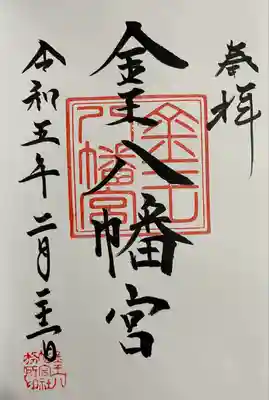 奉拝
金王八幡宮
金王
八幡宮
令和五年二月 日
金王八
幡宮社
務所印